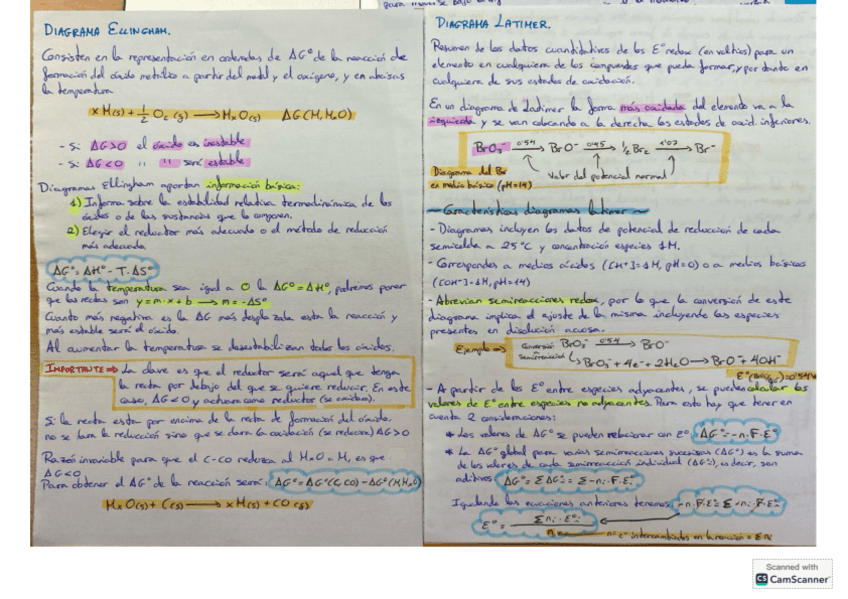 para
DIAGRAMA ELLINGHAM.
Consisten en la representación en ordenadas de ΔGº de la reacción de
formación del óxido metálico a partir del metal y el oxígeno, y en abcisas
la temperatura
xM(s) + 1/2 O₂(g) → MₓO(s) ΔG(M,MₓO)
- Si ΔG>0 el óxido es inestable
- Si ΔG<0 " " será estable
Diagramas Ellingham aportan información básica:
1) Informa sobre la estabilidad relativa termodinámica de los
óxidos o de las sustancias que lo componen.
2) Elegir el reductor más adecuado o el método de reducción
más adecuada
ΔGº = ΔHº - T·ΔSº
Cuando la temperatura sea igual a 0 la ΔGº = ΔHº, podremos poner
que las rectas son y = m·x + b → m = -ΔSº
Cuanto más negativa es la ΔG más desplazada esta la reacción y
más estable será el óxido.
Al aumentar la temperatura se desestabilizan todos los óxidos.
IMPORTANTE ⇒ La clave es que el reductor será aquel que tenga
la recta por debajo del que se quiere reducir. En este
caso, ΔG<0 y actuara como reductor (se oxidara).
Si la recta esta por encima de la recta de formación del óxido,
no se dara la reducción sino que se dara la oxidación (se reducira) ΔG>0
Razón invariable para que el C-CO reduzca al MₓO → M, es que
ΔG<0
Para obtener el ΔGº de la reacción será: ΔGº = ΔGº(C,CO) - ΔGº(M,MₓO)
MₓO(s) + C(s) → xM(s) + CO(g)
DIAGRAMA LATIMER.
Resumen de los datos cuantitativos de los Eº redox (en voltios) para un
elemento en cualquiera de los compuestos que pueda formar, y por tanto en
cualquiera de sus estados de oxidación.
En un diagrama de Latimer la forma más oxidada del elemento va a la
izquierda y se van colocando a la derecha los estados de oxid. inferiores.
BrO₃⁻ 0'54 → BrO⁻ 0'45 → 1/2 Br₂ 1'07 → Br⁻
Diagrama del Br
en medio básico (pH=14)
Valor del potencial normal
Características diagramas latimer
- Diagramas incluyen los datos de potencial de reducción de cada
semicelda a 25ºC y concentración especies 1M.
- Correspondes a medios ácidos ([H+]=1M, pH=0) o a medios básicos
([OH-]=1M, pH=14)
- Abrevian semireacciones redox, por lo que la conversión de este
diagrama implica el ajuste de la misma incluyendo las especies
presentes en disolución acuosa.
Ejemplo → conversión BrO₃⁻ 0'54 → BrO⁻
semirreacción → BrO₃⁻ + 4e⁻ + 2H₂O → BrO⁻ + 4OH⁻
- A partir de los Eº entre especies adyacentes, se puede calcular los
valores de Eº entre especies no adyacentes. Para esto hay que tener en
cuenta 2 consideraciones:
* Los valores de ΔGº se pueden relacionar con Eº: ΔGº = -n·F·Eº
* La ΔGº global para varias semirreacciones sucesivas (ΔGº) es la suma
de los valores de cada semirreacción individual (ΔGºᵢ), es decir, son
aditivos ΔGº = ΣΔGºᵢ = Σ-nᵢ·F·Eºᵢ
Igualando las ecuaciones anteriores tenemos: -n·F·Eº = Σ-nᵢ·F·Eºᵢ
Eº = Σnᵢ·Eºᵢ / n
n = e⁻ intercambiados en la reacción = Σnᵢ
Scanned with
CS CamScanner